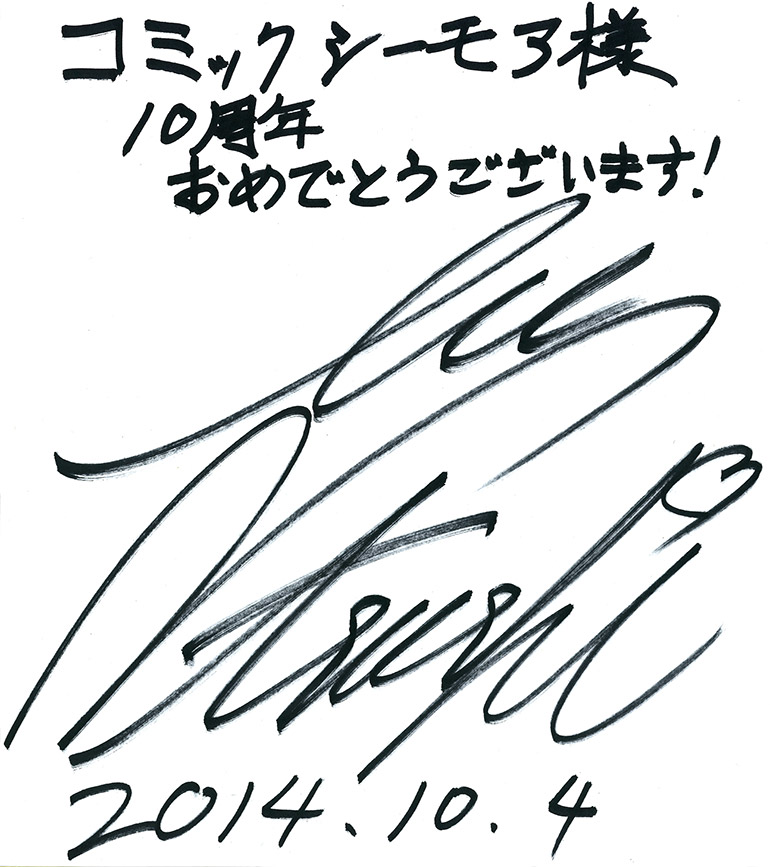 コミックシーモア様
10周年
おめでとうございます!
2014.10.4